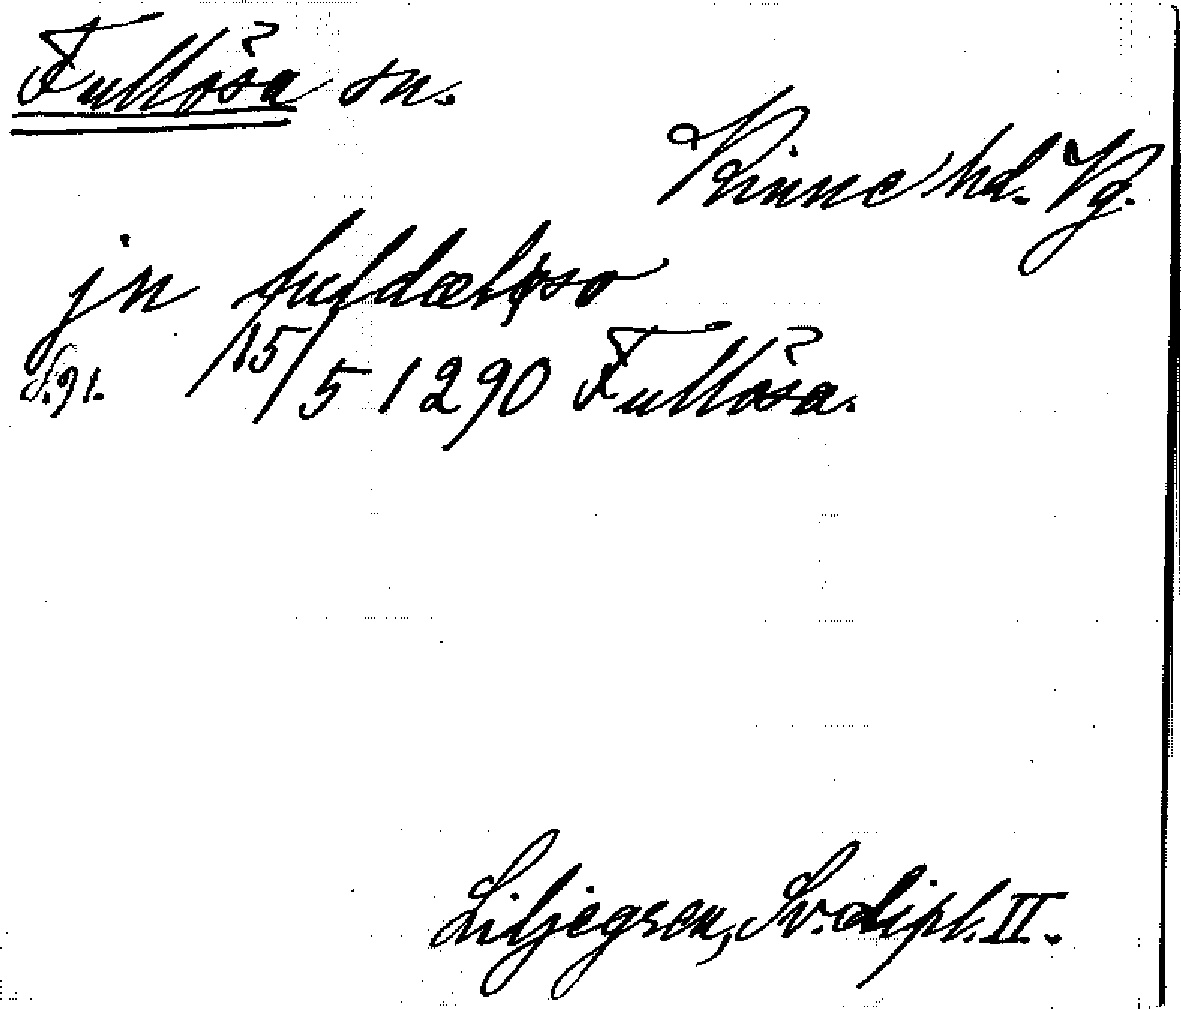 Fullösa sn.
Kinne hd. Vg.
jn fufdæløso
s. 91. 15/5 1290 Fullösa.
Liljegren, Sv. dipl. II.